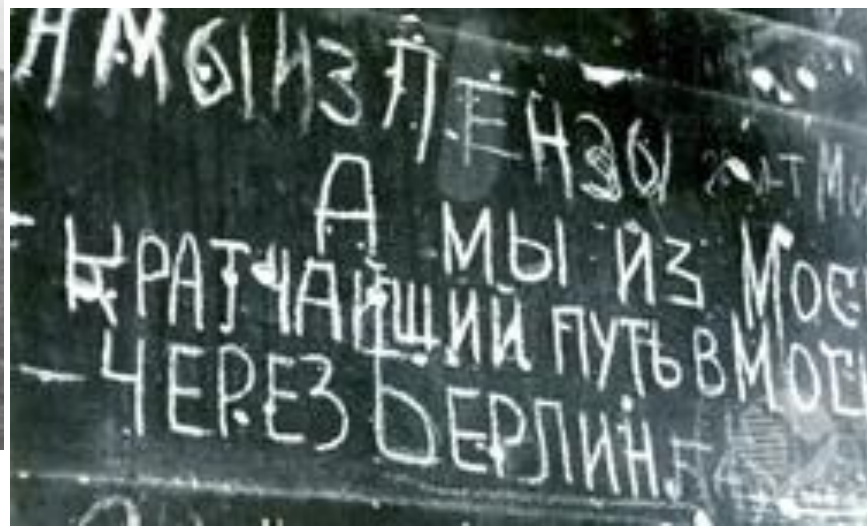 МЫ ИЗ ПЕНЗЫ
А МЫ ИЗ МОСК
КРАТЧАЙЩИЙ ПУТЬ В МОСК
ЧЕРЕЗ БЕРЛИН.